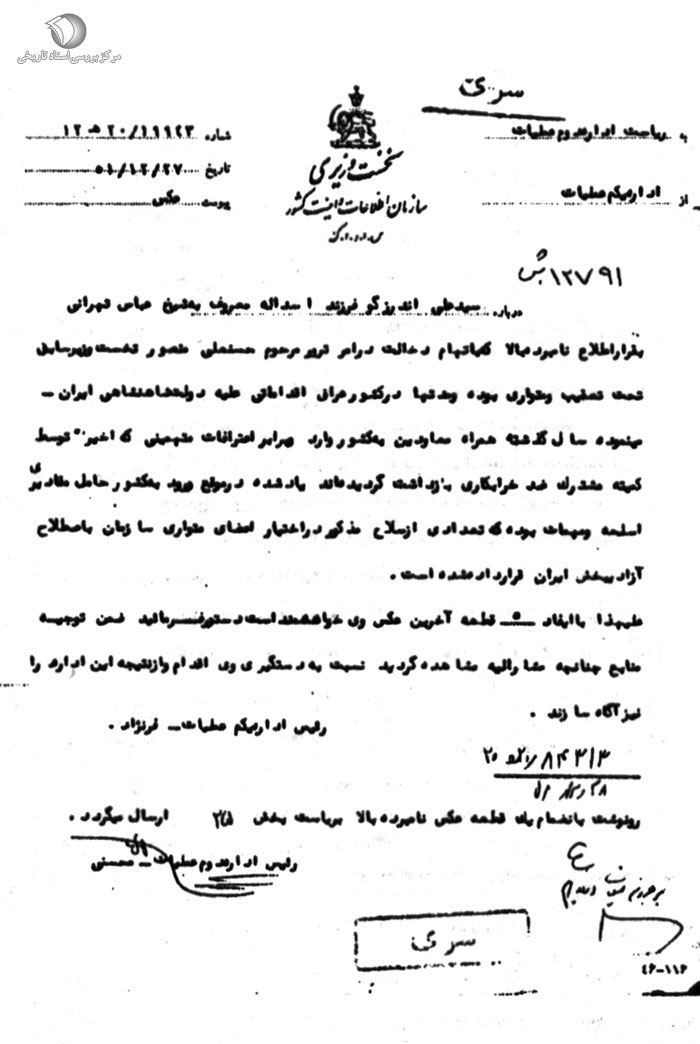 مرکز بررسی اسناد تاریخی
سری
به ریاست اداره دوم عملیات
از اداره یکم عملیات
نخست وزیری
سازمان اطلاعات و امنیت کشور
س.ا.و.ا.ک
شماره ۱۹۹۲۳/۲۰ هـ ۱۲
تاریخ ۵۱/۱۲/۲۷
پیوست عکس
۱۲۷۹۱ ش
درباره سیدعلی اندرزگو فرزند اسداله معروف به شیخ عباس تهرانی
بقرار اطلاع نامبرده بالا که باتهام دخالت در امر ترور مرحوم حسنعلی منصور نخست وزیر سابق
تحت تعقیب و متواری بوده و مدتها در کشور عراق اقداماتی علیه دولت شاهنشاهی ایران –
مینموده سال گذشته همراه معاودین به کشور وارد و برابر اعترافات متهمینی که اخیراً توسط
کمیته مشترک ضد خرابکاری بازداشت گردیده‌اند یاد شده در موقع ورود به کشور حامل مقادیری
اسلحه و مهمات بوده که تعدادی از سلاح مذکور در اختیار اعضای متواری سازمان باصطلاح
آزادیبخش ایران قرار داده شده است.
علیهذا با ایفاد ۵ قطعه آخرین عکس وی خواهشمند است دستور فرمائید ضمن توجیه
منابع چنانچه مشارالیه مشاهده گردید نسبت به دستگیری وی اقدام و از نتیجه این اداره را
نیز آگاه سازند.
رئیس اداره یکم عملیات – فرنژاد.
رونوشت بانضمام یک قطعه عکس نامبرده بالا بریاست بخش ارسال میگردد.
رئیس اداره دوم عملیات – محسنی
سری
۴۶-۱۱۶